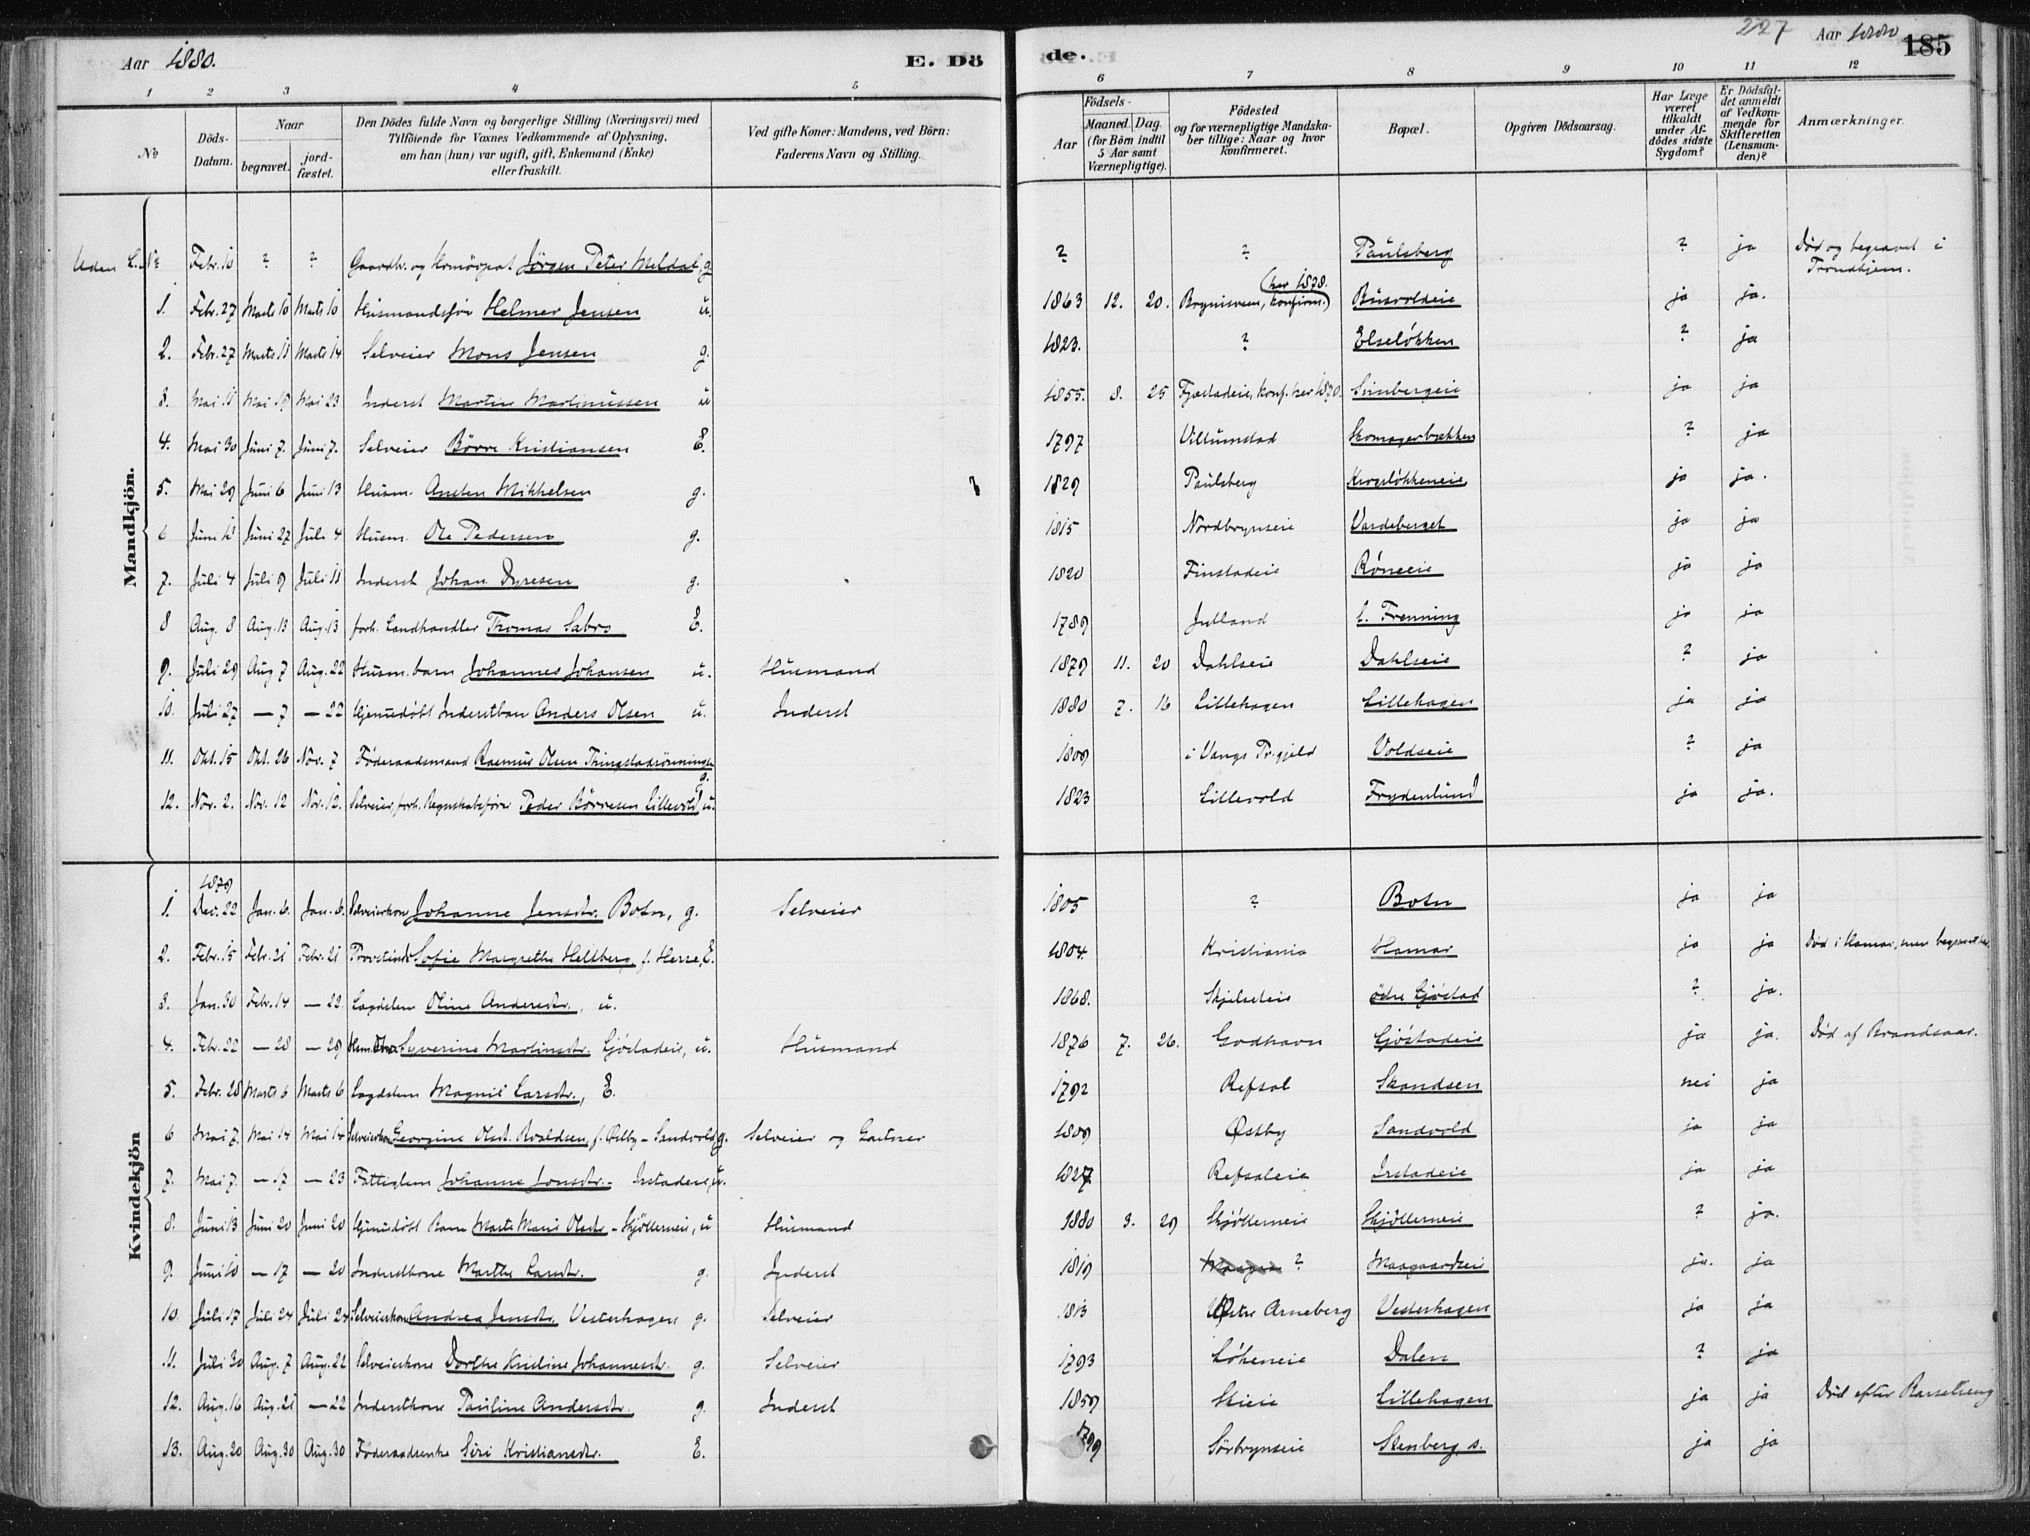 Aar 1880. E. Dö de. 227 Aar 1880 185
1 2 3 4 5 6 7 8 9 10 11 12
No Döds-Datum. Naar begravet. jordfæstet. Den Dödes fulde Navn og borgerlige Stilling (Næringsvei) med Tilföiende for Voxnes Vedkommende af Oplysning, om han (hun) var ugift, gift, Enkemand (Enke) eller fraskilt. Ved gifte Koner: Mandens, ved Börn: Faderens Navn og Stilling. Födsels- Aar Maaned. Dag. (for Börn indtil 5 Aar samt Værnepligtige). Födested og for værnepligtige Mandskaber tillige: Naar og hvor konfirmeret. Bopæl. Opgiven Dödsaarsag. Har Læge været tilkaldt under Afdödes sidste Sygdom? Er Dödsfaldet anmeldt af Vedkommende for Skifteretten (Lensmanden)? Anmærkninger.
Mandkjön.
Uden L. No Febr. 10 ? ? Gaardbr. og Jørgen Peter Meldal, g ? ? Paulsberg ? ja Død og begravet i Trondhjem.
1. Febr. 27 Marts 10 Marts 10 Husmandssøn Helmer Jensen u. 1863 12. 20. Brynisveen, (konfirm. her 1878.) Busvoldeie ja ja.
2. Febr. 27 Marts 11 Marts 14 Selveier Mons Jensen g. 1823. ? Elseløkken ? ja
3. Mai 11 Mai 19 Mai 23 Inderst Martin Martinussen u 1855. 8. 25 Fjæstadeie, konf. her 1870. Svinbergeie ja ja
4. Mai 30 Juni 7. Juni 7. Selveier Børre Kristiansen E. 1797 Villumstad Skomagerbækken ? ja
5. Mai 29 Juni 6 Juni 13 Husm. Anders Mikkelsen g. 1829 Paulsberg Krogsløkkeneie ja ja.
6 Juni 18 Juni 27 Juli 4 Husm. Ole Pedersen g. 1815 Nordbrynseie Vardeberget ja ja
7. Juli 4 Juli 9 Juli 11 Inderst Johan Dyresen g. 1820 Finstadeie Røneeie ja ja
8 Aug. 8 Aug. 13 Aug. 13 forh. Landhandler Thomas Sabro E. 1789 Jylland l. Frenning ja ja
9. Juli 29 Aug 7 Aug. 22 Husm. barn Johannes Johansen u. Husmand 1879 11. 20 Dahlseie Dahlseie ? ja
10. Juli 27 — 7 — 22 Hjemmedøbt Inderstbarn Anders Olsen u. Inderst 1880 7. 16 Lillehagen Lillehagen ja ja
11. Okt. 15 Okt. 26 Nov. 7 Føderaadsmand Rasmus Olsen Thingstadrønningen g. 1809 i Vangs Pr.gjeld Voldseie ? ja
12. Nov. 2. Nov. 12 Nov. 12. Selveier, forh. Regnskabsfører Peder Børresen Lillevold u. 1823 Lillevold Frydenlund ja ja.
Kvindekjön
1. 1879 Dec. 22 Jan. 6. Jan. 6. Selveierkone Johanne Jensdtr. Botn, g. Selveier 1805 ? Botn ja ja
2. Febr. 15 Febr. 21 Febr. 21 Provstinde Sofie Margrethe Hellberg f. Herre, E. 1804. Kristiania Hamar ja ja Død i Hamar, men begravet her.
3. Jan. 30 Febr. 14 — 22. Lægdslem Oline Andersdtr., u. 1868. Skjelseteie ødre Gjøstad ? ja.
4. Febr. 22 — 28 — 29 Syverine Martinsdtr. Gjøstadeie, u. Husmand 1876 7. 26. Godhavn Gjøstadeie ja ja. Død af Brandsaar.
5. Febr. 28 Marts 6 Marts 6 Lægdslem Magnil Larsdtr., E. 1792 Refsal Skandsen nei ja
6 Mai 7. Mai 14 Mai 14 Selveierkone Georgine Olsd. Roaldsen, f. Østby – Sandvold, g. Selveier og Gartner 1809 Østby Sandvold ja ja
7. Mai 7. — 17 — 23 Fattiglem Johanne Jonsdtr. – Irstadeie, u. 1827 Refsaleie Irstadeie ja ja
8. Juni 13 Juni 20 Juni 20 Hjemmedøbt Barn Marte Marie Olsdtr – Skjølterneie, u Husmand 1880 3. 29 Skjølterneie Skjølterneie ? ja.
9. Juni 10 — 17 — 20 Inderstkone Marthe Larsdtr. g. Inderst 1819 ? Maagaardseie ja. ja
10. Juli 17 Juli 24 Juli 24 Selveierkone Andrea Jensdtr. Vesterhagen g. Selveier 1813 Østre Arneberg Vesterhagen ja ja
11. Juli 30 Aug. 7 Aug. 22 Selveierkone Dorthe Kristine Johannesdt. g. Selveier 1793 Løkeneie Dalen ? ja
12. Aug. 16 Aug. 21 — 22 Inderstkone Pauline Andersdtr. g. Inderst 1850 Skieie Lillehagen ja ja Død efter Barselseng
13. Aug. 20 Aug. 30 Aug. 30 Føderaadsenke Siri Kristiansdtr. E. 1799 Sørbrynseie Stenberg, s. ja ja